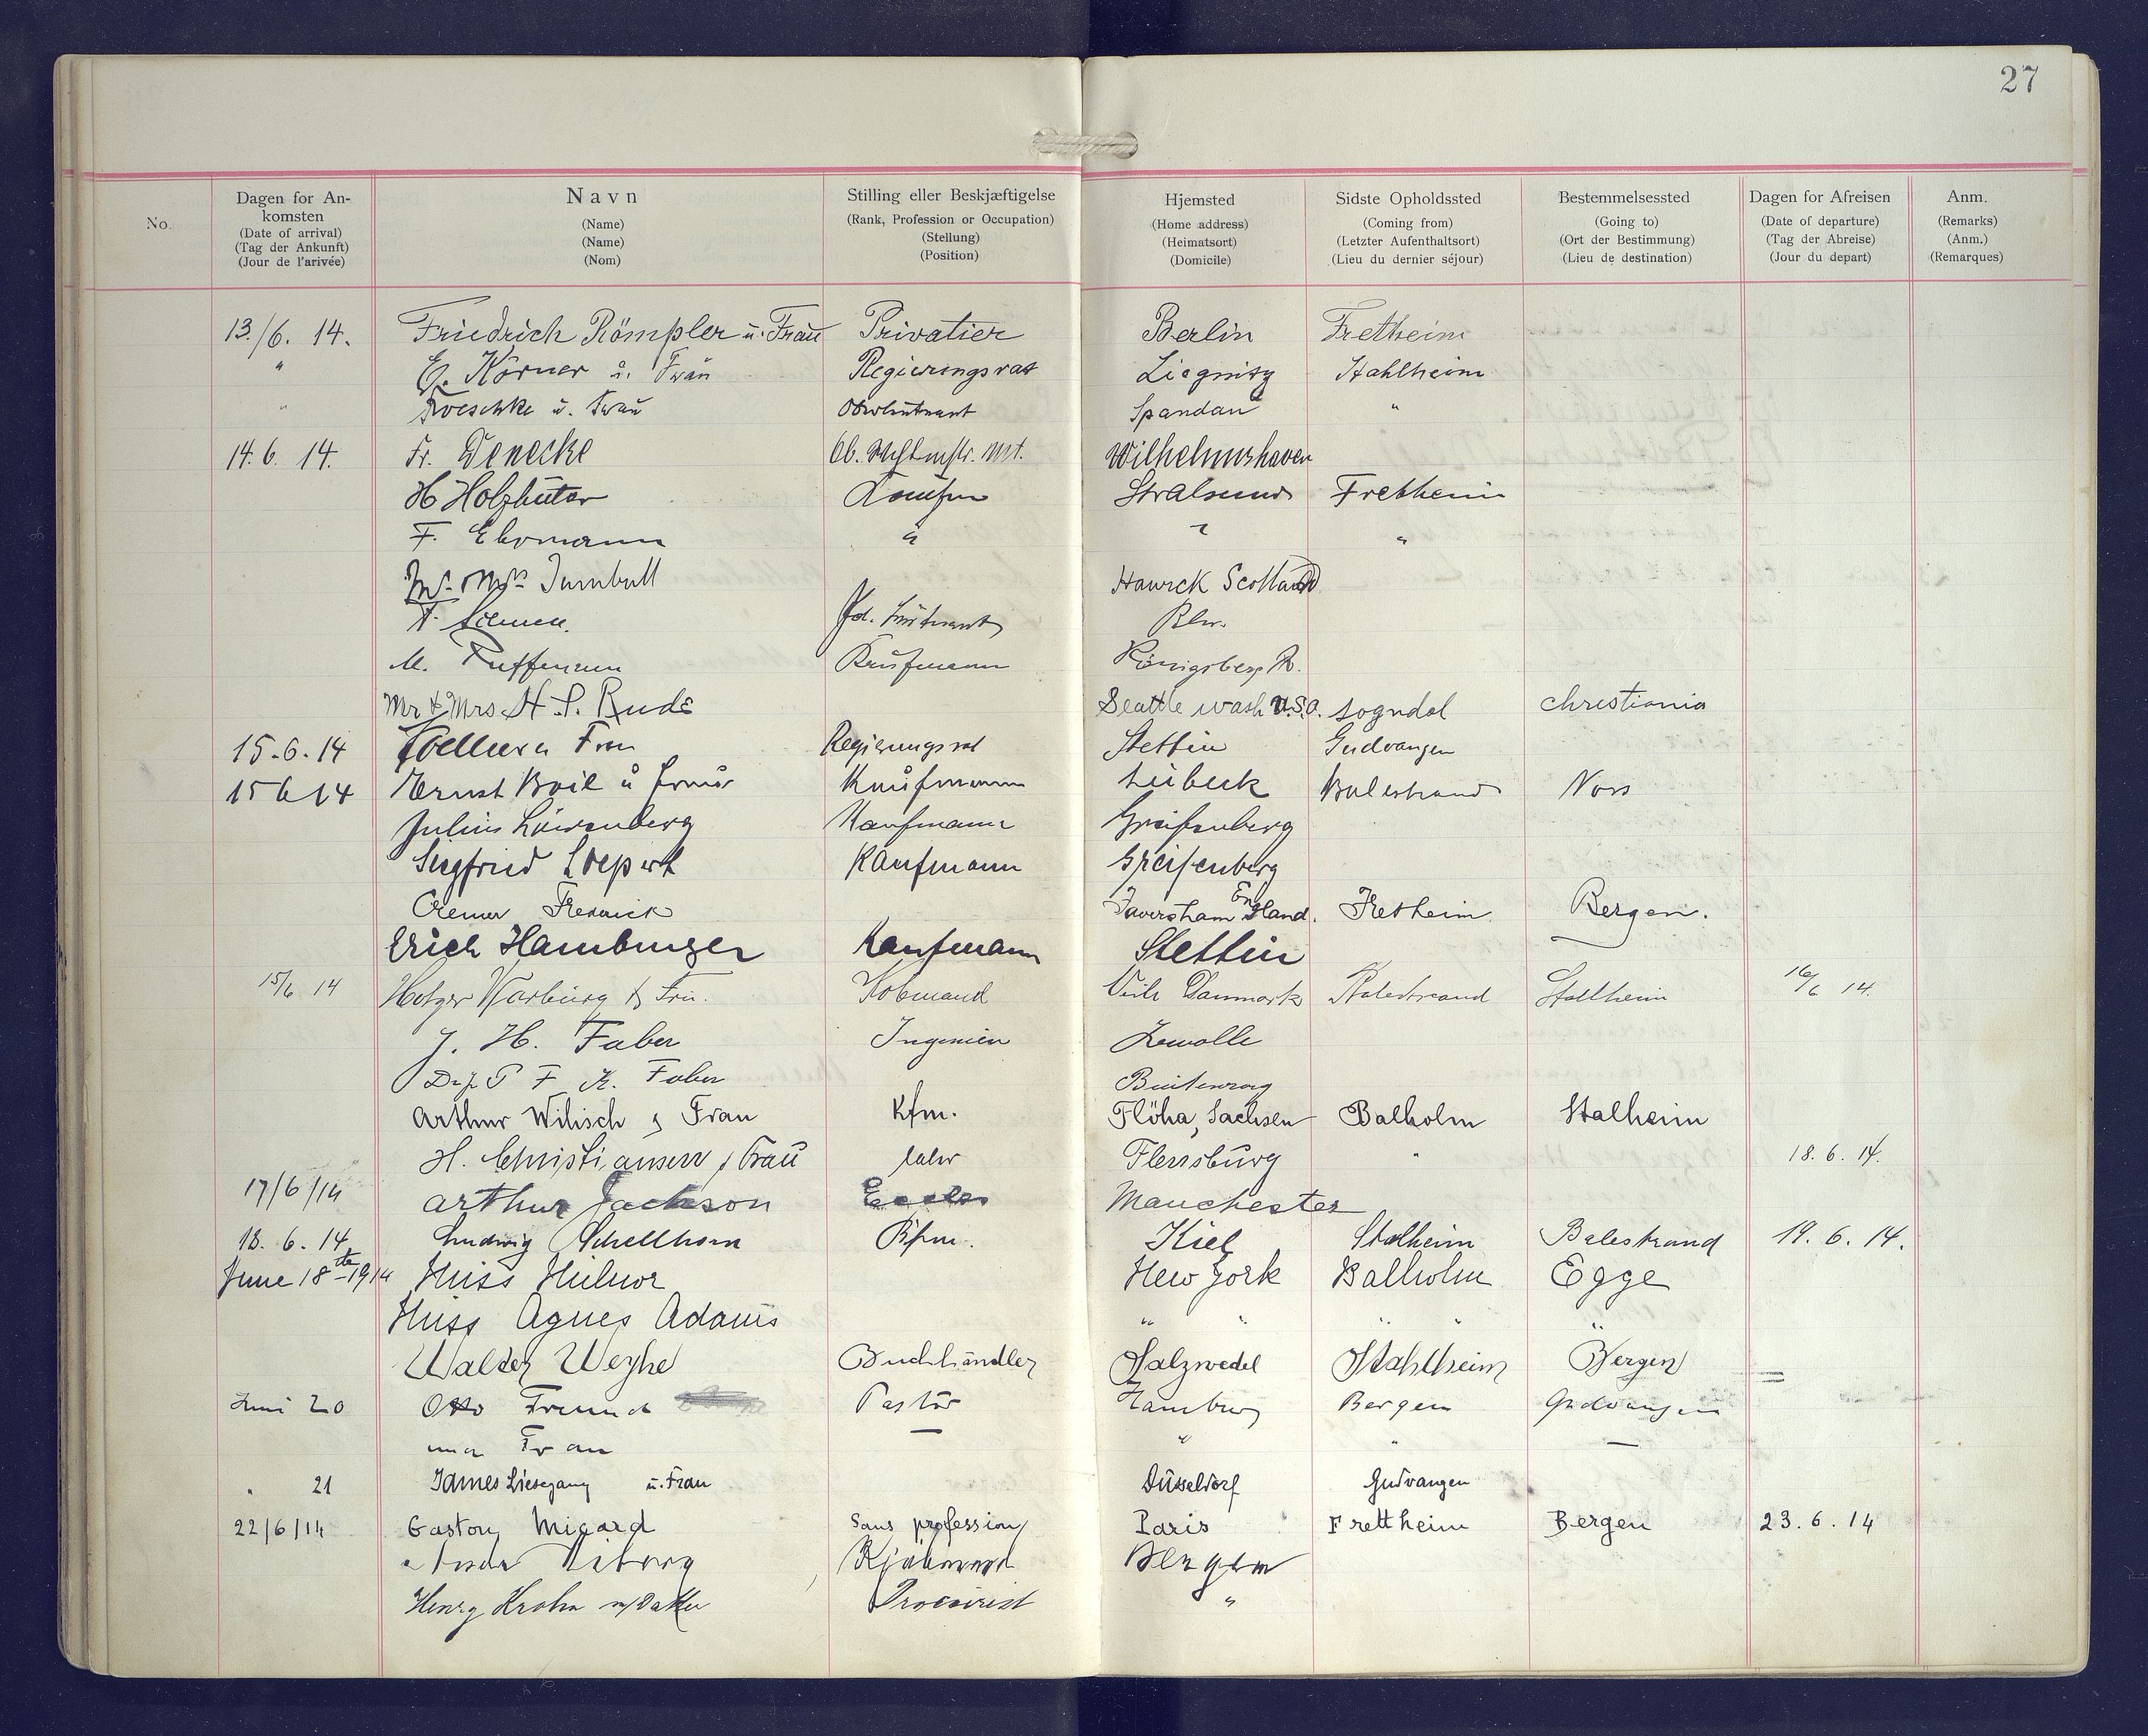 27
No.
Dagen for An-
komsten
(Date of arrival)
(Tag der Ankunft)
(Jour de l'arivée)
Navn
(Name)
(Name)
(Nom)
Stilling eller Beskjæftigelse
(Rank, Profession or Occupation)
(Stellung)
(Position)
Hjemsted
(Home address)
(Heimatsort)
(Domicile)
Sidste Opholdssted
(Coming from)
(Letzter Aufenthaltsort)
(Lieu du dernier séjour)
Bestemmelsessted
(Going to)
(Ort der Bestimmung)
(Lieu de destination)
Dagen for Afreisen
(Date of departure)
(Tag der Abreise)
(Jour du depart)
Anm.
(Remarks)
(Anm.)
(Remarques)
13./6. 14. Friedrich Römpler u. Frau Privatier Berlin Fretheim
" Körner u. Frau Regierungsrat Liegnitz Stahlheim
" u. Frau Oberleutnant Spandau "
14. 6. 14. Fr. Denecke Wilhelmshaven
H Holzhüter Kaufm Stralsund Fretheim
F. " " "
Mr. & Mrs Turnbull Hawick Scotland
Bln.
M. Kaufmann Königsberg Pr.
Mr & Mrs H. P. Rude Seattle Wash U.S.A. Sogndal Christiania
15. 6. 14 Frau Regierungsrat Stettin Gudvangen
15 6 14 Ernst Boil u Frau Kaufmann Lübeck Balestrand Voss
Julius Löwenberg Kaufmann Greifenberg
Siegfried Loepert Kaufmann Greifenberg
Cremer Frederick Faversham England. Fretheim. Bergen.
Erich Hamburger Kaufmann Stettin
15/6 14 Holger Warburg & Fru. Kobmand Veile Danmark Balestrand Stalheim 16/6 14.
J. H. Faber Ingenieur Zwolle
F K. Faber Buitenzorg
Arthur Wilisch & Frau Kfm. Flöha, Sachsen Balholm Stalheim
H. Christiansen & Frau Flensburg " 18. 6. 14.
17/6/14 Arthur Jackson Manchester
18. 6. 14 Ludwig Schellhorn Kfm. Kiel Stalheim Balestrand 19. 6. 14.
June 18th 1914 Miss Milnor New York Balholm Egge
Miss Agnes Adams " " " " "
Walter Weyhe Buchhändler Salzwedel Stahlheim Bergen
Juni 20 Otto Freund Pastor Hamburg Bergen Gudvangen
und Frau — " " —
" 21 James Liesegang u. Frau Düsseldorf Gudvangen
22/6/14 Gaston Migard Sans profession Paris Frettheim Bergen 23. 6. 14
Kjøbmand Bergen
Henry Krohn m/Datter Procurist "